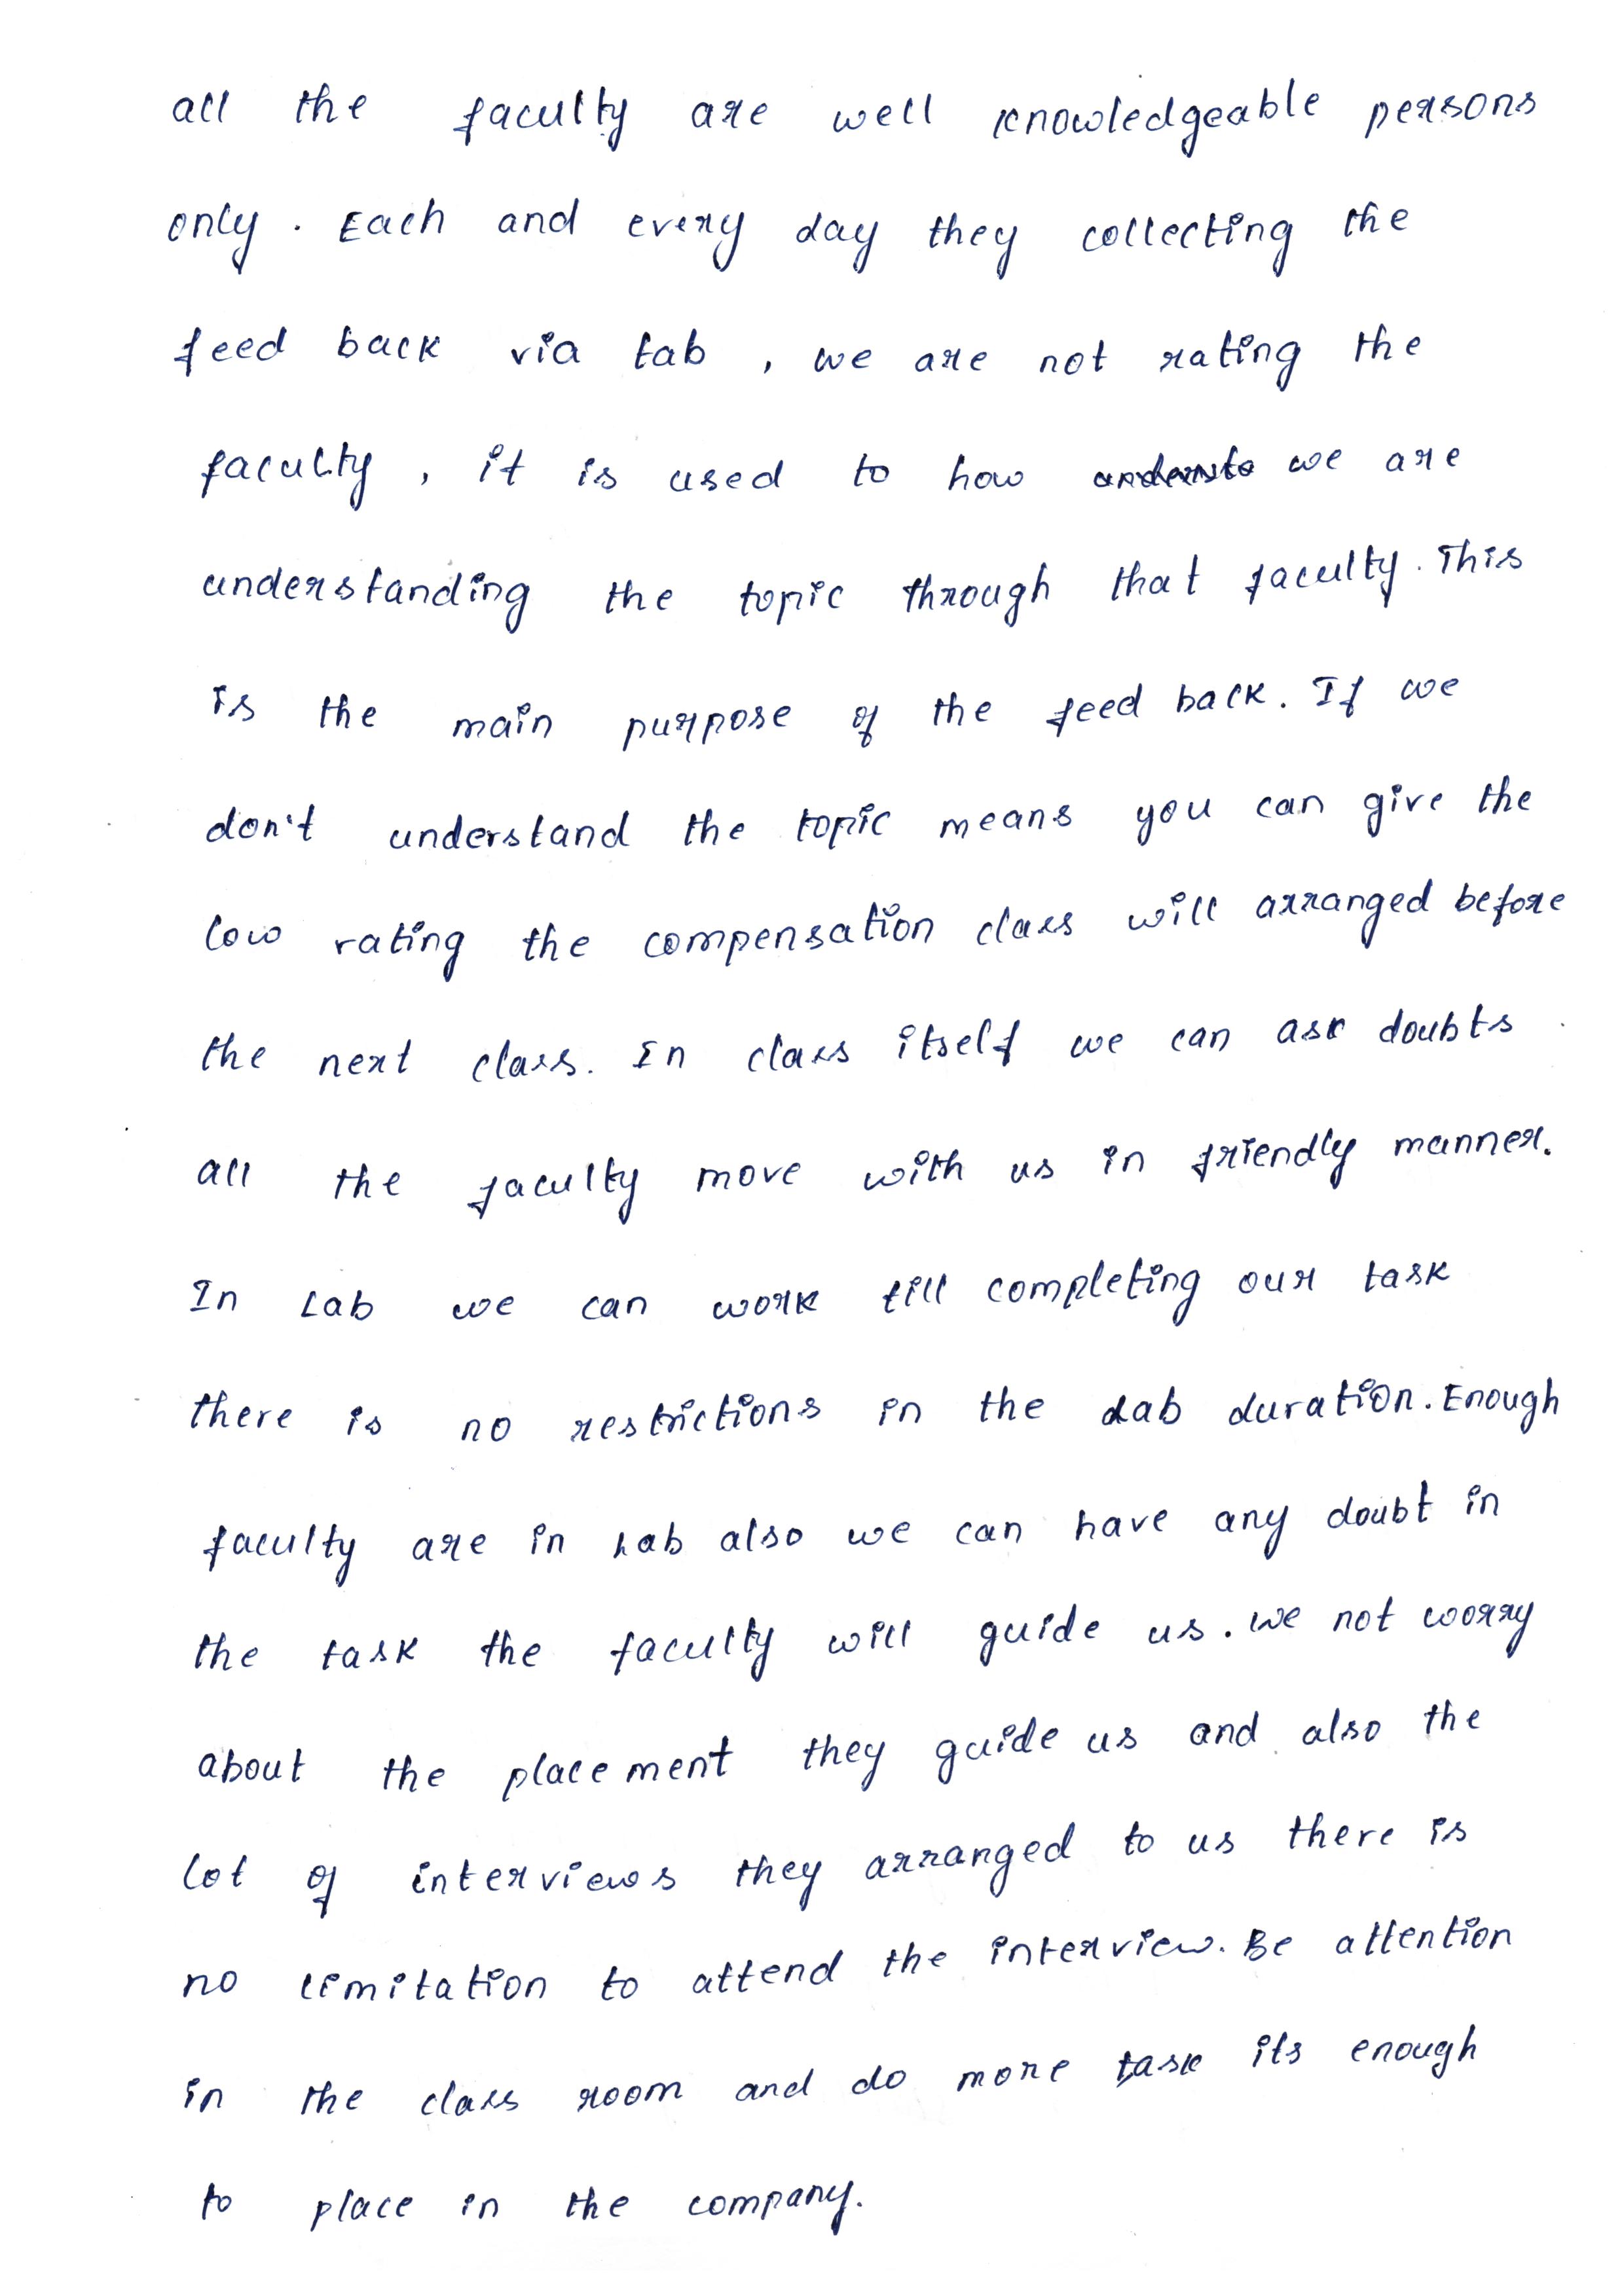 all the faculty are well knowledgeable persons
only. Each and every day they collecting the
feed back via tab, we are not rating the
faculty, it is used to how we are
understanding the topic through that faculty. This
is the main purpose of the feed back. If we
don't understand the topic means you can give the
low rating the compensation class will arranged before
the next class. In class itself we can ask doubts
all the faculty move with us in friendly manner.
In Lab we can work till completing our task
there is no restrictions in the Lab duration. Enough
faculty are in Lab also we can have any doubt in
the task the faculty will guide us. we not worry
about the placement they guide us and also the
lot of interviews they arranged to us there is
no limitation to attend the interview. Be attention
in the class room and do more task its enough
to place in the company.